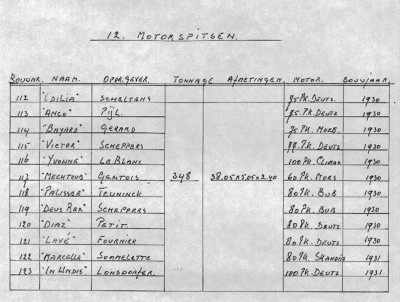 12. MOTORSPITSEN.
BOUWNR. NAAM. OPDR.GEVER. TONNAGE AFMETINGEN. MOTOR. BOUWJAAR.
112 "ODILIA" SCHALTANS 1930
113 "ANCO" PIJL. 85 PK. DEUTZ 1930
114 "BAYARD" GERARD 1930
115 "VICTOR" SCHEPPERS DEUTZ 1930
116 "YVONNE" LA BLANC 100 PK. CLIMAX 1930
117 GENTOIS 348 38.05x5.05x2.40 60 PK. 1930
118 "PALISSER" TEUNINCK 80 PK. BUB 1930
119 "DEUS REX" SCHEPPERS 80 PK. BUB 1930
120 "DIAZ" PETIT. 80 PK. DEUTZ 1930
121 "LAVÉ" FOURNIER 80 PK. DEUTZ 1930
122 "MARCELLA" SOMMELETTE 80 PK. SKANDIA 1931
123 "IN UNDIS" LONSDORFER. 100 PK. DEUTZ 1931